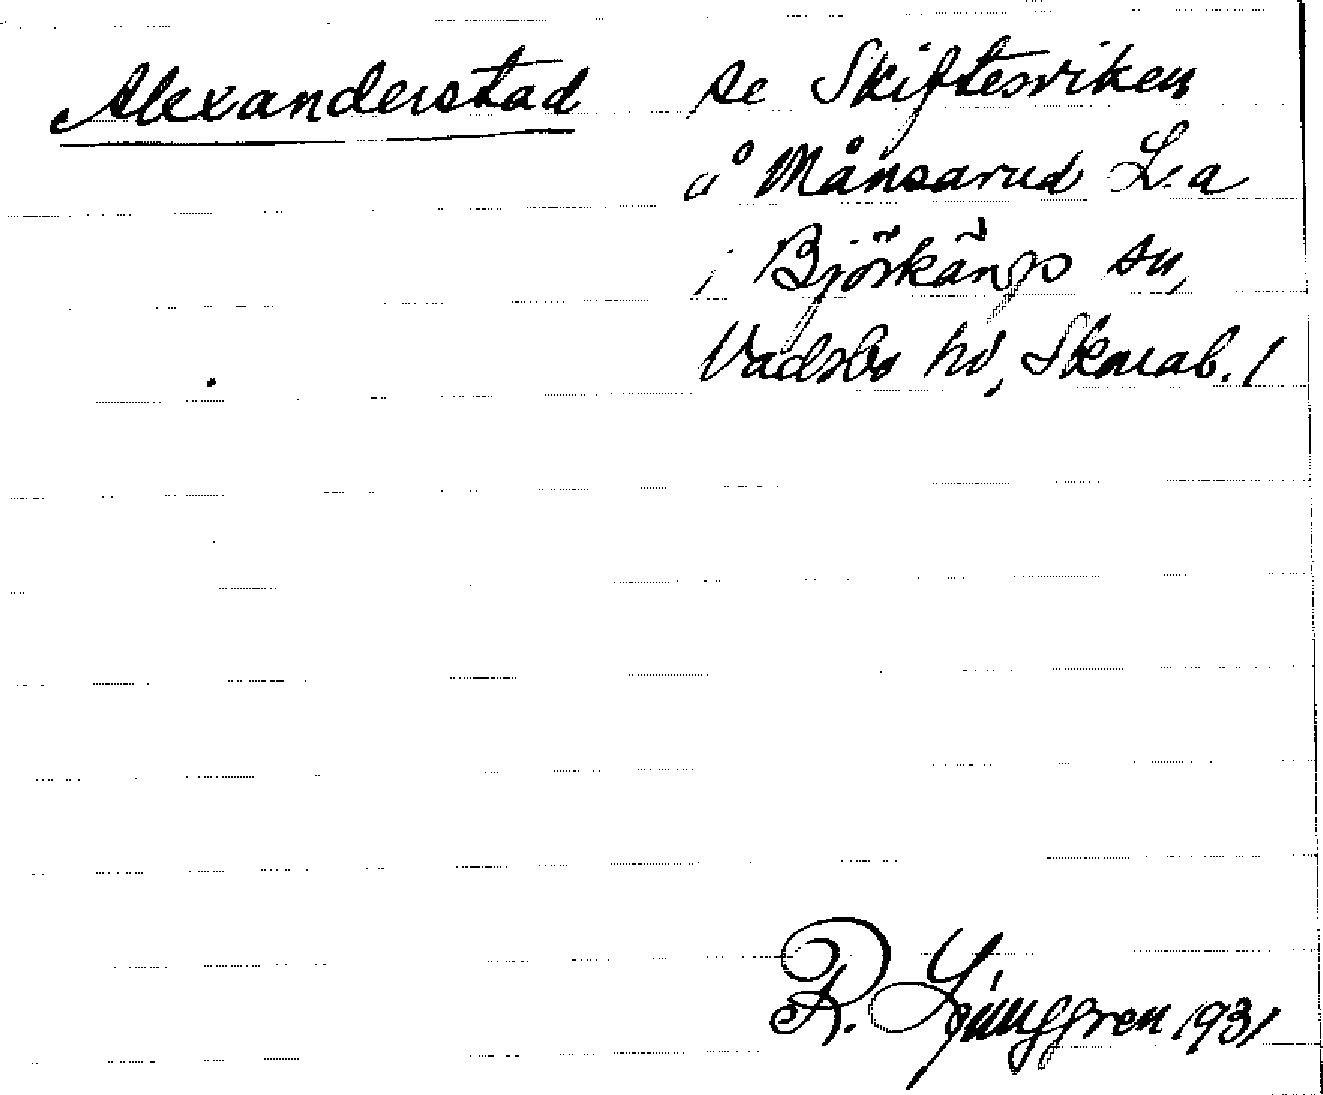 Alexanderstad se Skiftesviken
å Månsarud L:a
i Björkängs sn,
Vadsbo hd, Skarab. l
R. Ljunggren 1931